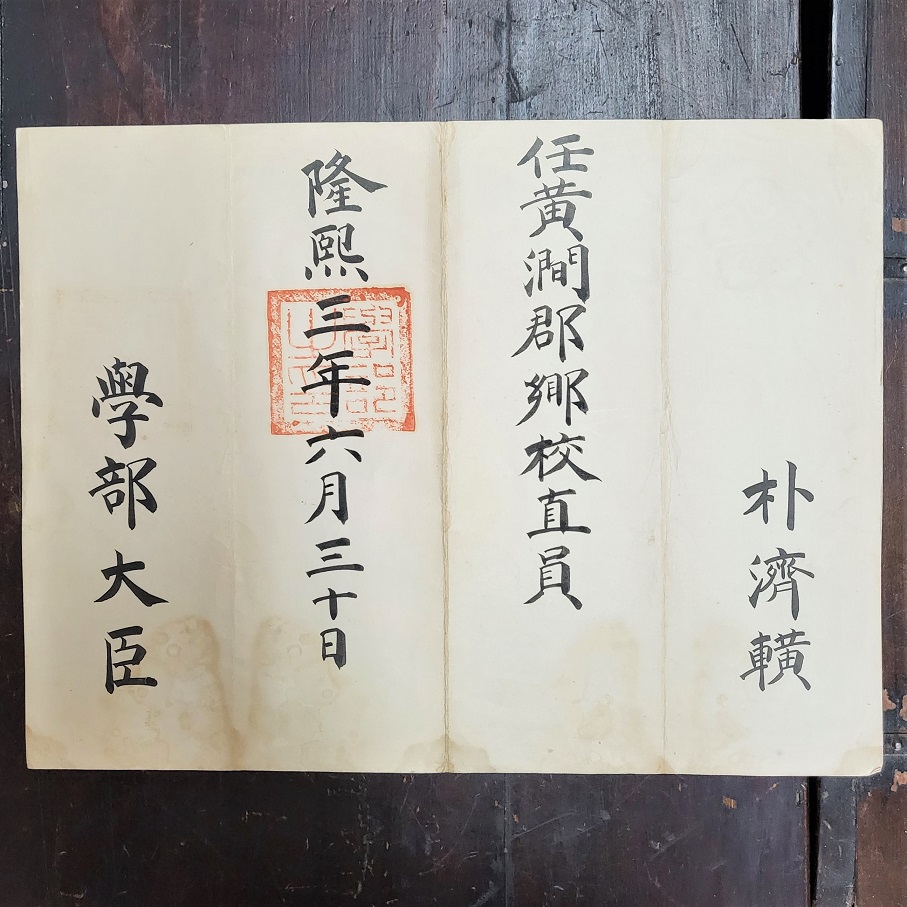 朴濟轒
任黃澗郡鄕校直員
隆熙三年六月三十日
學部大臣